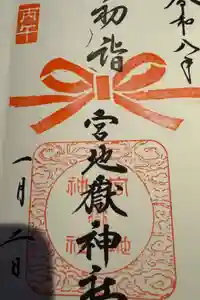 令和八年
初詣
丙午
宮地嶽神社
一月二日